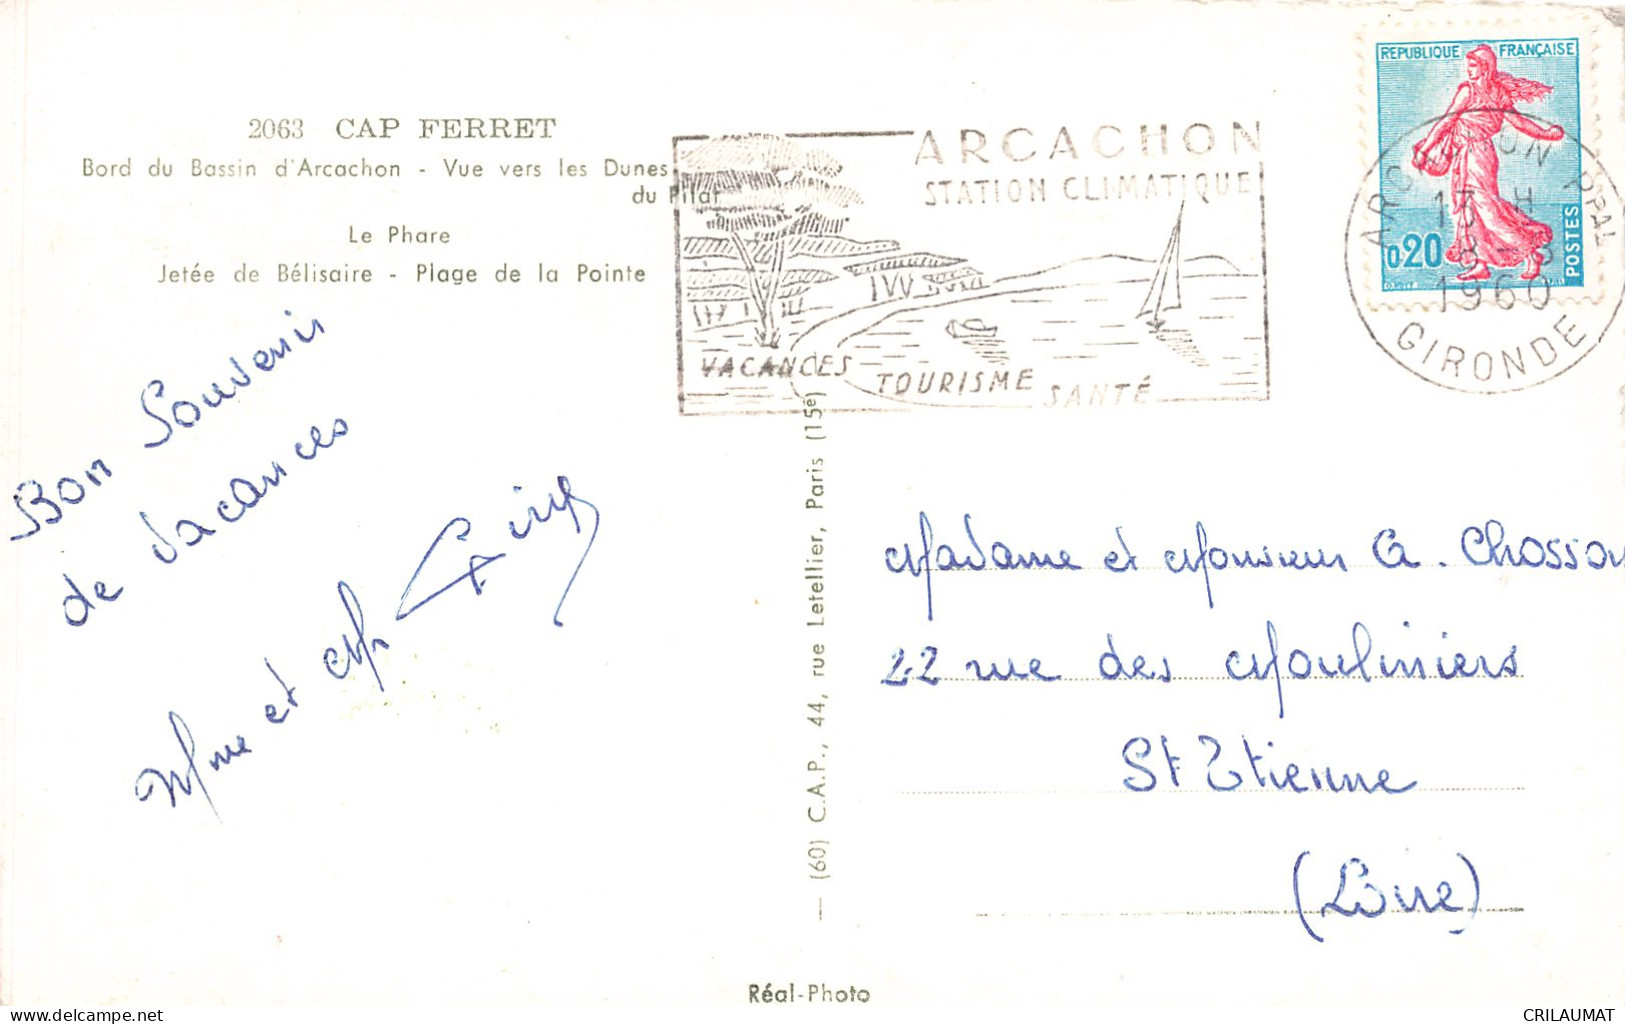 2063 CAP FERRET
Bord du Bassin d'Arcachon - Vue vers les Dunes
du Pilat
Le Phare
Jetée de Bélisaire - Plage de la Pointe
ARCACHON
STATION CLIMATIQUE
VACANCES
TOURISME
SANTÉ
REPUBLIQUE FRANÇAISE
0,20
POSTES
ARCACHON PPAL
13 H
8 - 8
1960
GIRONDE
Bon Souvenir
de vacances
Mme et Mr
— (60) C.A.P., 44, rue Letellier, Paris (15e)
Madame et Monsieur G. Chosson
22 rue des Mouliniers
St Etienne
(Loire)
Réal-Photo
delcampe.net
CRILAUMAT